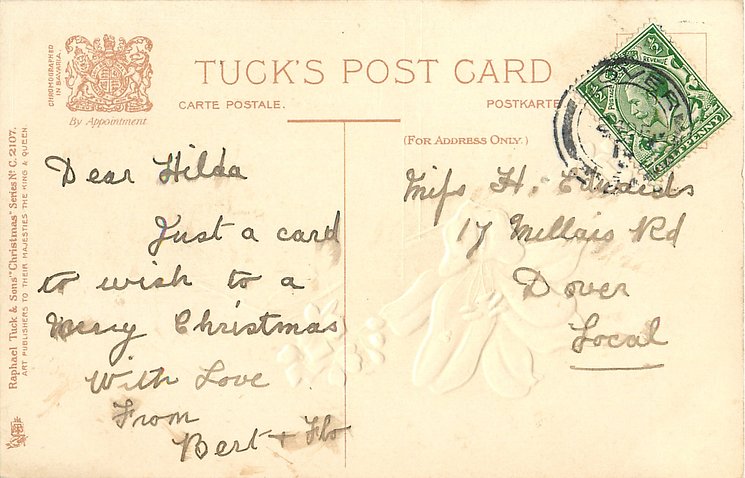 CHROMOGRAPHED
IN BAVARIA.
By Appointment
TUCK'S POST CARD
CARTE POSTALE.
POSTKARTE
(FOR ADDRESS ONLY.)
Raphael Tuck & Sons' "Christmas" Series No C. 2107.
ART PUBLISHERS TO THEIR MAJESTIES THE KING & QUEEN.
Dear Hilda
Just a card
to wish to a
Merry Christmas
With Love
From
Bert + Flo
Miss H.
17 Millais Rd
Dover
Local
POSTAGE
REVENUE
HALFPENNY